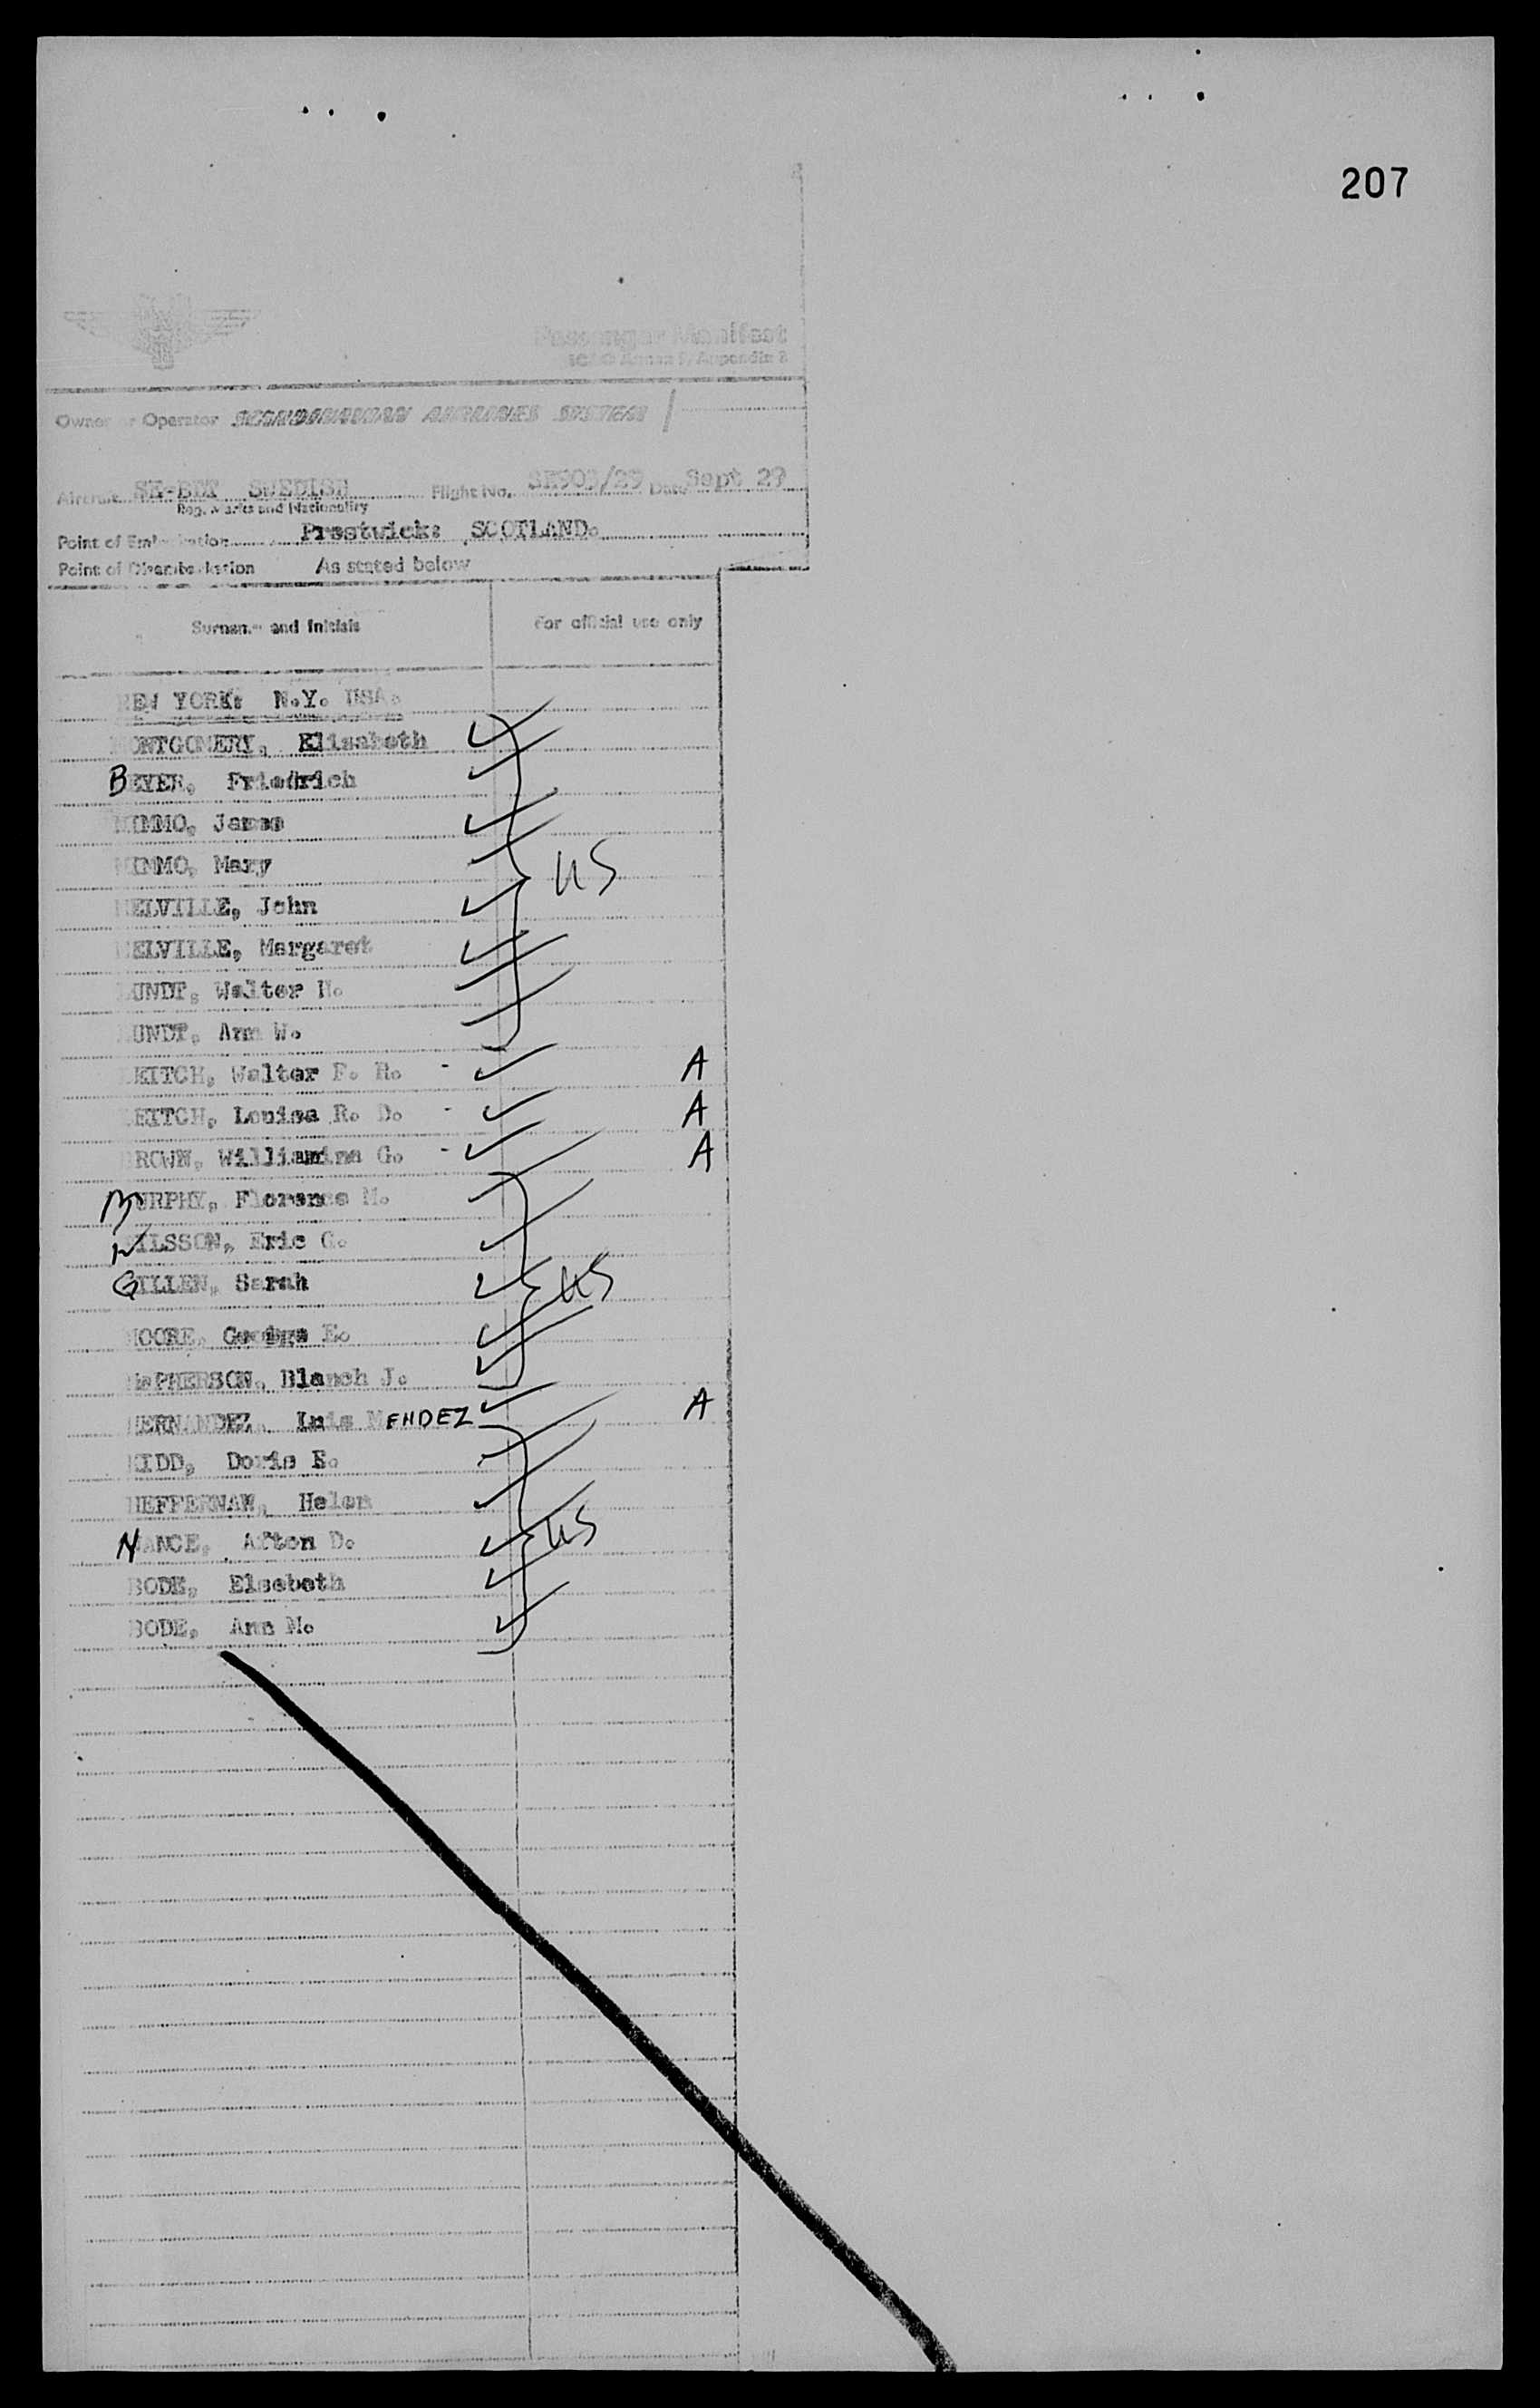 207
Passenger Manifest
ICAO Annex 9, Appendix 2
Owner or Operator SCANDINAVIAN AIRLINES SYSTEM
Aircraft SE-BDY SWEDISH Flight No. Date Sept 29
Reg. Marks and Nationality
Point of Embarkation Prestwick: SCOTLAND.
Point of Disembarkation As stated below
Surname and Initials For official use only
NEW YORK: N.Y. USA.
MONTGOMERY, Elisabeth
BEYER, Friedrich
NIMMO, James
NIMMO, Mary US
MELVILLE, John
MELVILLE, Margaret
LUNDT, Walter H.
LUNDT, Ann W.
LEITCH, Walter F. R. - A
LEITCH, Louisa R. D. - A
BROWN, Williamina G. - A
MURPHY, Florence M.
NILSSON, Eric G.
GILLEN, Sarah US
MOORE, George E.
McPHERSON, Blanch J.
HERNANDEZ, Luis MENDEZ A
KIDD, Doris E.
HEFFERNAN, Helen
NANCE, Afton D. US
BODE, Elsebeth
BODE, Ann M.